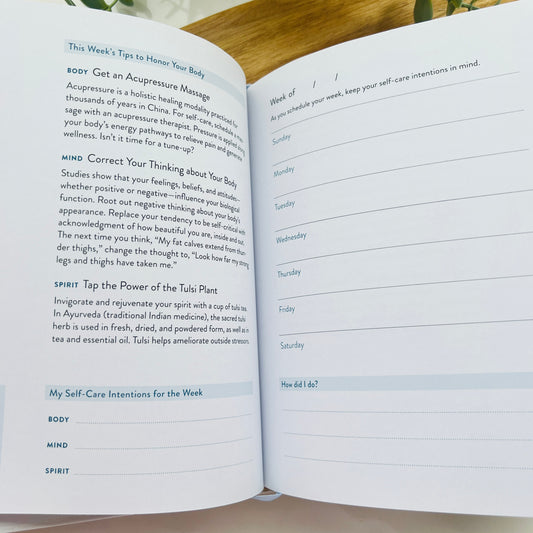 This Week's Tips to Honor Your Body
BODY Get an Acupressure Massage
Acupressure is a holistic healing modality practiced for
thousands of years in China. For self-care, schedule a mas-
sage with an acupressure therapist. Pressure is applied along
your body's energy pathways to relieve pain and generate
wellness. Isn't it time for a tune-up?
MIND Correct Your Thinking about Your Body
Studies show that your feelings, beliefs, and attitudes—
whether positive or negative—influence your biological
function. Root out negative thinking about your body's
appearance. Replace your tendency to be self-critical with
acknowledgment of how beautiful you are, inside and out.
The next time you think, "My fat calves extend from thun-
der thighs," change the thought to, "Look how far my strong
legs and thighs have taken me."
SPIRIT Tap the Power of the Tulsi Plant
Invigorate and rejuvenate your spirit with a cup of tulsi tea.
In Ayurveda (traditional Indian medicine), the sacred tulsi
herb is used in fresh, dried, and powdered form, as well as in
tea and essential oil. Tulsi helps ameliorate outside stressors.
My Self-Care Intentions for the Week
BODY
MIND
SPIRIT
Week of / /
As you schedule your week, keep your self-care intentions in mind.
Sunday
Monday
Tuesday
Wednesday
Thursday
Friday
Saturday
How did I do?